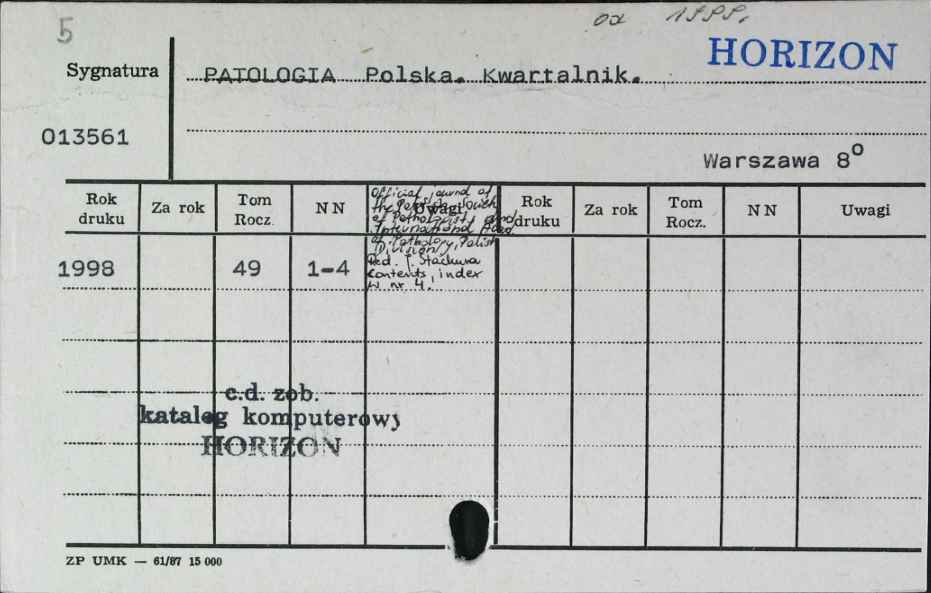 5
od 1999.
HORIZON
Sygnatura
PATOLOGIA Polska. Kwartalnik.
013561
Warszawa 8°
Rok druku Za rok Tom Rocz. NN Uwagi Rok druku Za rok Tom Rocz. NN Uwagi
Official journal of
the Polish
of Pathologists and
International
of Pathology, Polish
Division/
Red. J. Stachura
Contents, index
w nr 4.
1998 49 1-4
c.d. zob.
katalog komputerowy
HORIZON
ZP UMK — 61/87 15 000